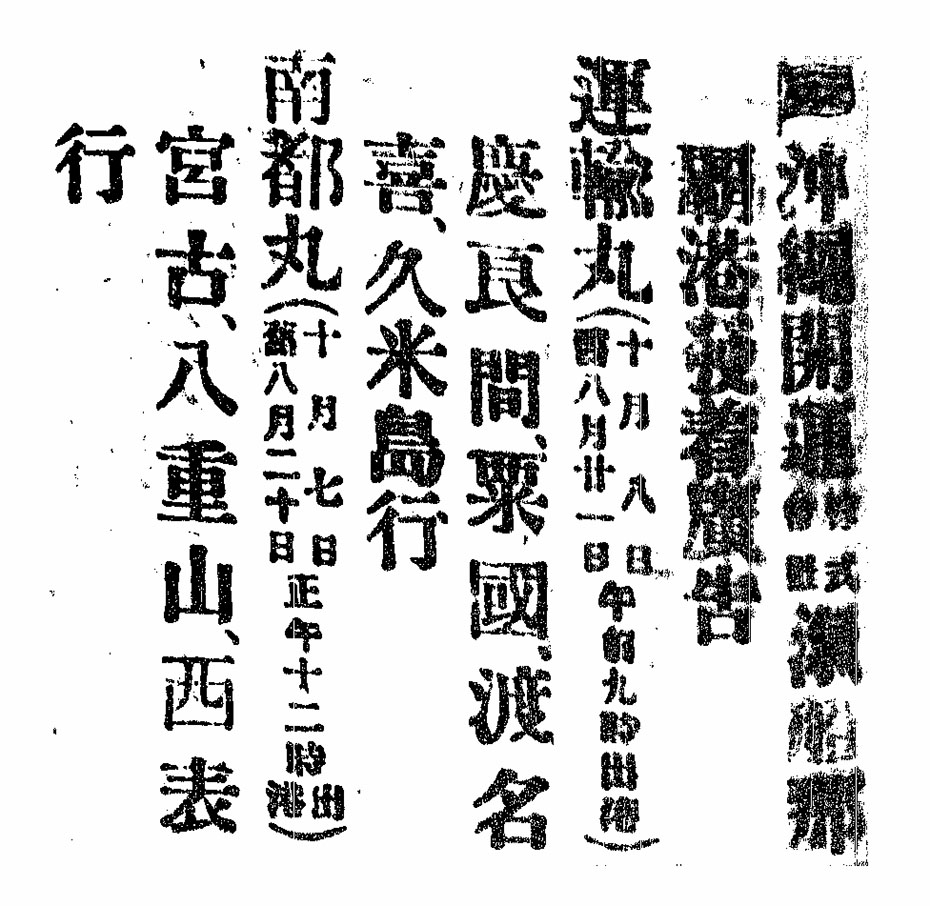 沖繩開運株式會社濱船那
覇港發着廣告
運輸丸(十月八日舊八月廿一日午前九時出港)
慶良間、粟國、渡名
喜、久米島行
南都丸(十月七日舊八月二十日正午十二時出港)
宮古、八重山、西表
行